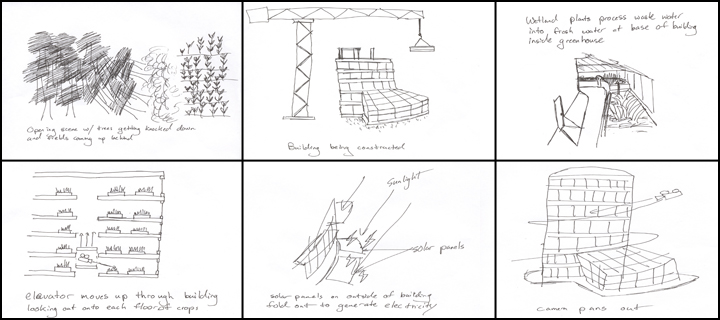 Opening scene w/ trees getting knocked down
and fields coming up behind
Building being constructed
Wetland plants process waste water
into fresh water at base of building
inside greenhouse
elevator moves up through building
looking out onto each floor of crops
Sunlight
solar panels
solar panels on outside of building
fold out to generate electricity
camera pans out